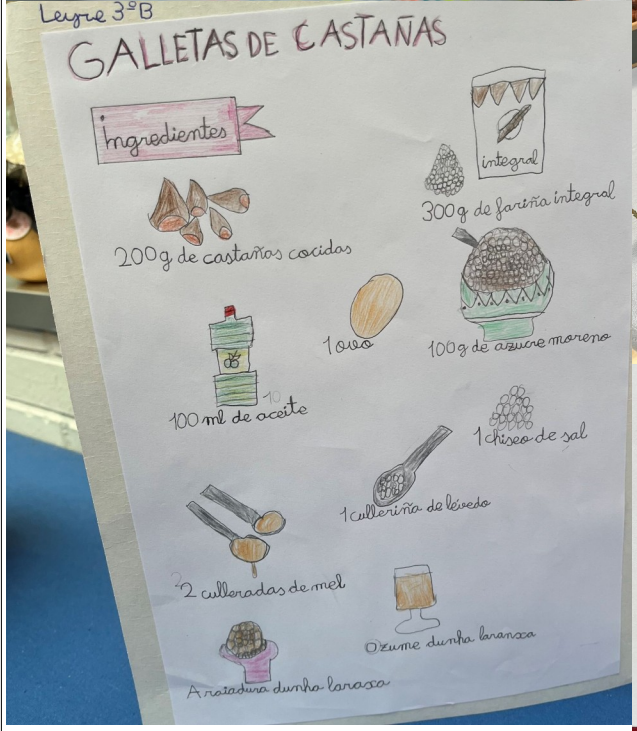 Leyre 3ºB
GALLETAS DE CASTAÑAS
Ingredientes
integral
300g de fariña integral
200g de castañas cocidas
1 ovo
100g de azucre moreno
100 ml de aceite
10
1 chisco de sal
1 culleriña de lévedo
2 culleradas de mel
O zume dunha laranxa
A raiadura dunha laraxa